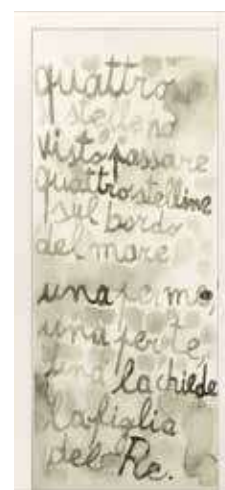 quattro
stelle ho
visto passare
quattro stelline
sul bordo
del mare
una per me,
una per te,
una la chiede
la figlia
del Re.